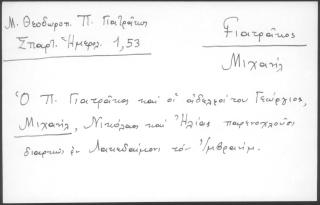 Μ. Θεοδωροπ. Π. Γιατράκος
Σπαρτ. Ἡμερολ. 1, 53
Γιατράκος
Μιχαήλ
Ὁ Π. Γιατράκος καὶ οἱ ἀδελφοί του Γεώργιος,
Μιχαήλ, Νικόλαος καὶ Ἠλίας παρενοχλοῦσι
διαρκῶς ἐν Λακεδαίμονι τὸν Ἰμβραήμ.